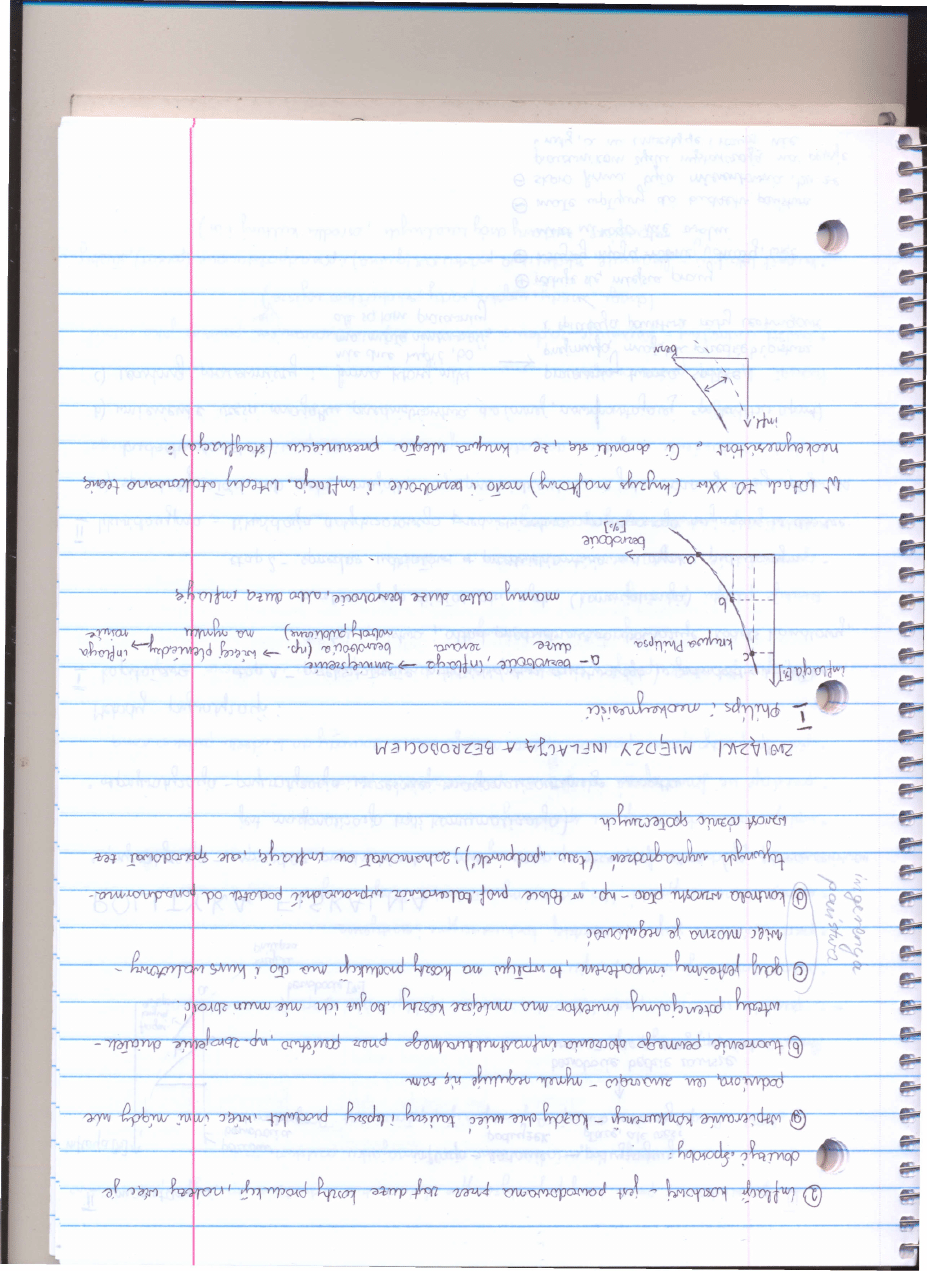 ② inflacji kosztowej - jest powodowana przez zbyt duże koszty produkcji, należy więc je
obniżyć. Sposoby:
ⓐ wspieranie konkurencji - każdy chce mieć tańszy i lepszy produkt, więc inni między nie
podwiozą cen zwierząt - rynek reguluje się sam
ⓑ tworzenie pewnego otoczenia infrastrukturalnego przez państwo, np. zbrojenie działek -
wtedy potencjalny inwestor ma mniejsze koszty, bo już ich nie musi zbroić.
ⓒ gdy jesteśmy importerem, to wpływ na koszty produkcji ma też i kurs walutowy -
więc można je regulować
ⓓ kontrola wzrostu płac - np. w Polsce prof. Balcerowicz wprowadził podatek od ponadnorma-
tywnych wynagrodzeń (tzw. „popiwek"); zahamował on inflację, ale spowodował też
wzrost różnic społecznych
ingerencja
państwa
ZWIĄZKI MIĘDZY INFLACJĄ A BEZROBOCIEM
I Philips i neokeynesiści
inflacja [%]
c
krzywa Philipsa
b
a
bezrobocie
[%]
a - bezrobocie duże, inflacja zerowa → zmniejszenie bezrobocia (np. roboty publiczne) → więcej pieniędzy na rynku → inflacja rośnie
mamy albo duże bezrobocie, albo dużą inflację
W latach 70. XXw (kryzys naftowy) rosło i bezrobocie, i inflacja. Wtedy atakowano teorię
neokeynesistów. Ci bronili się, że krzywa uległa przesunięciu (stagflacja):
infl.
bezr